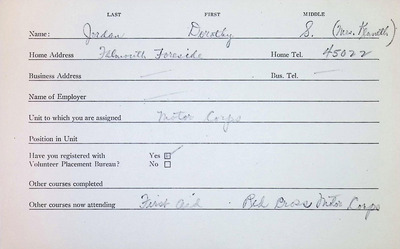 LAST FIRST MIDDLE
Name: Jordan Dorothy S. (Mrs. Kenneth)
Home Address Falmouth Foreside Home Tel. 45022
Business Address Bus. Tel.
Name of Employer
Unit to which you are assigned Motor Corps
Position in Unit
Have you registered with Yes
Volunteer Placement Bureau? No
Other courses completed
Other courses now attending First Aid - Red Cross Motor Corps